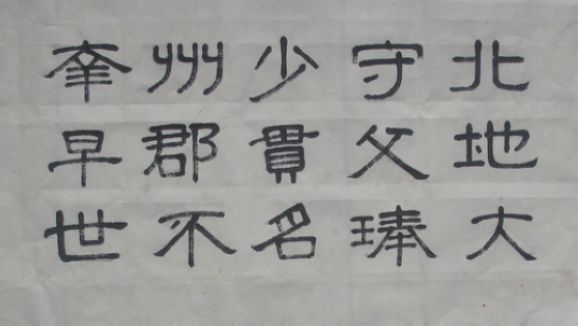 北地大
守父琫
少貫名
州郡不
幸早世